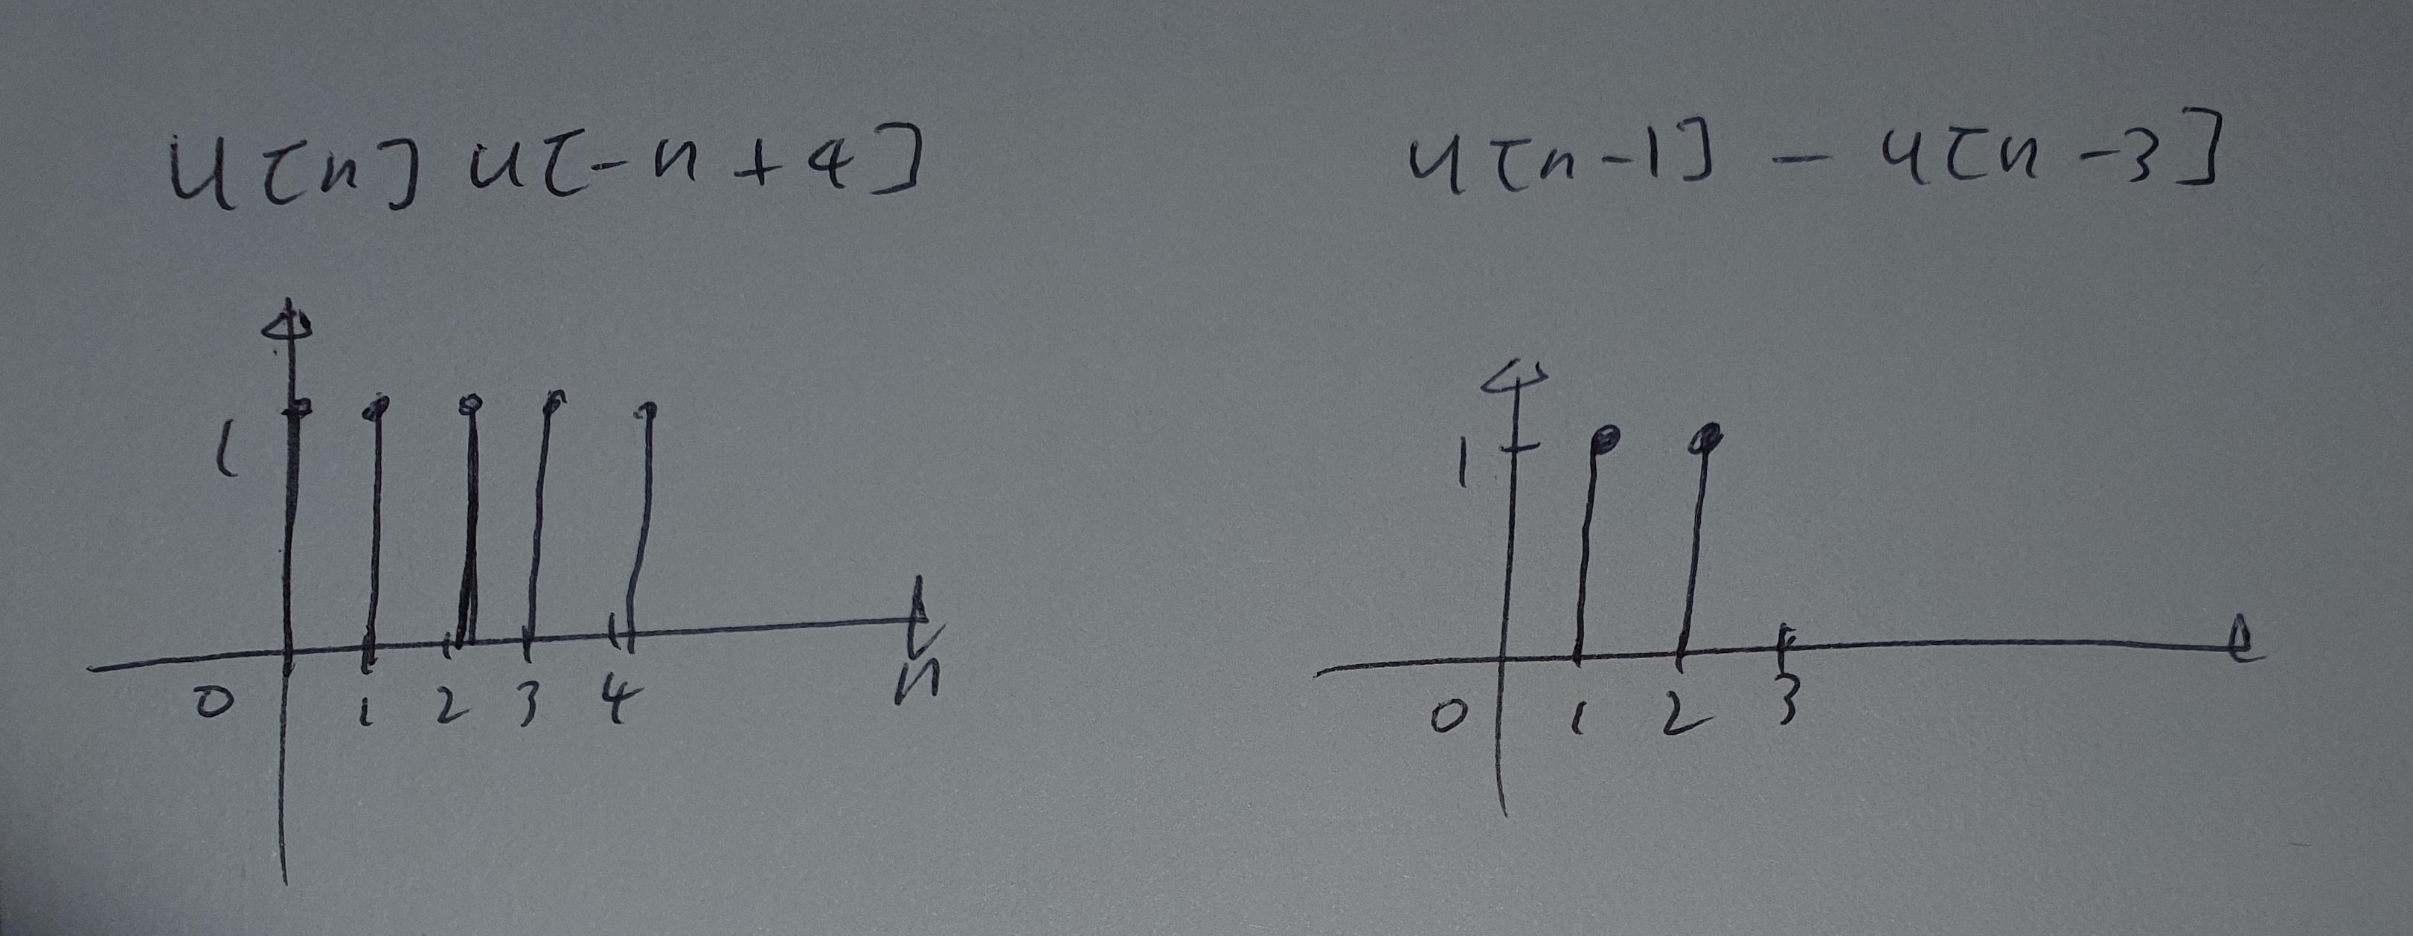 u[n] u[-n+4]
u[n-1] - u[n-3]
1
0 1 2 3 4 n
1
0 1 2 3